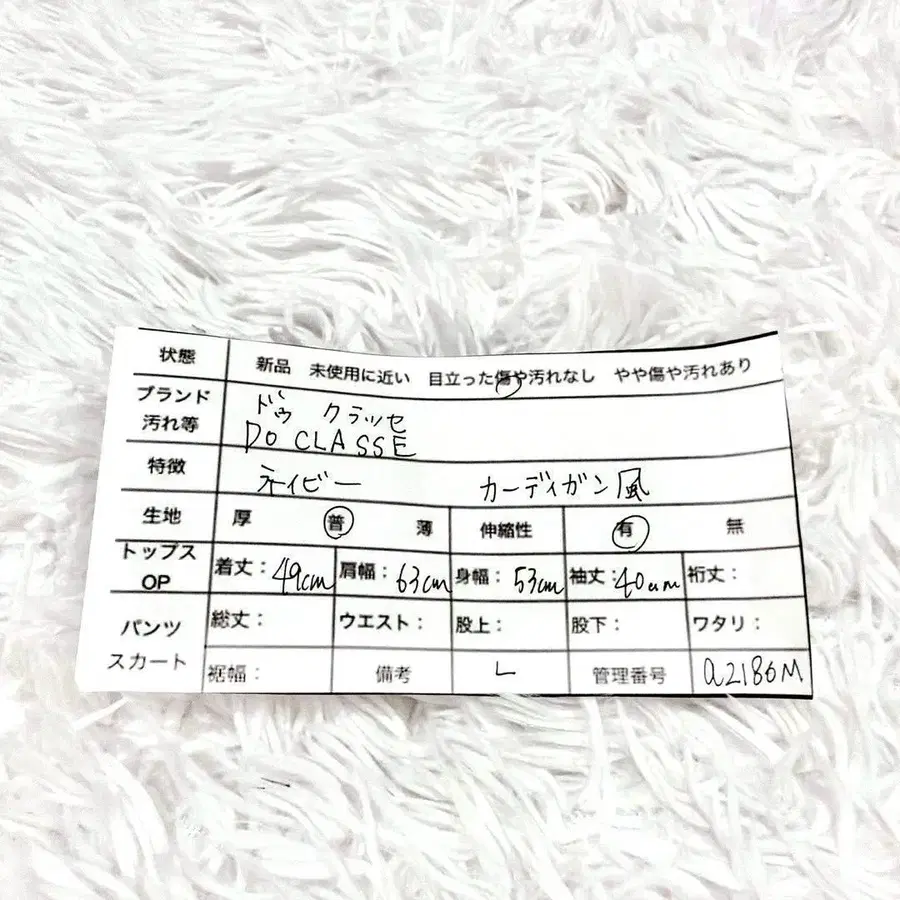 状態 新品 未使用に近い 目立った傷や汚れなし やや傷や汚れあり
ブランド ドゥ クラッセ
汚れ等 DO CLASSE
特徴 ネイビー カーディガン風
生地 厚 普 薄 伸縮性 有 無
トップス OP 着丈：49cm 肩幅：63cm 身幅：53cm 袖丈：40cm 裄丈：
パンツ 総丈： ウエスト： 股上： 股下： ワタリ：
スカート 裾幅： 備考 L 管理番号 a2186M